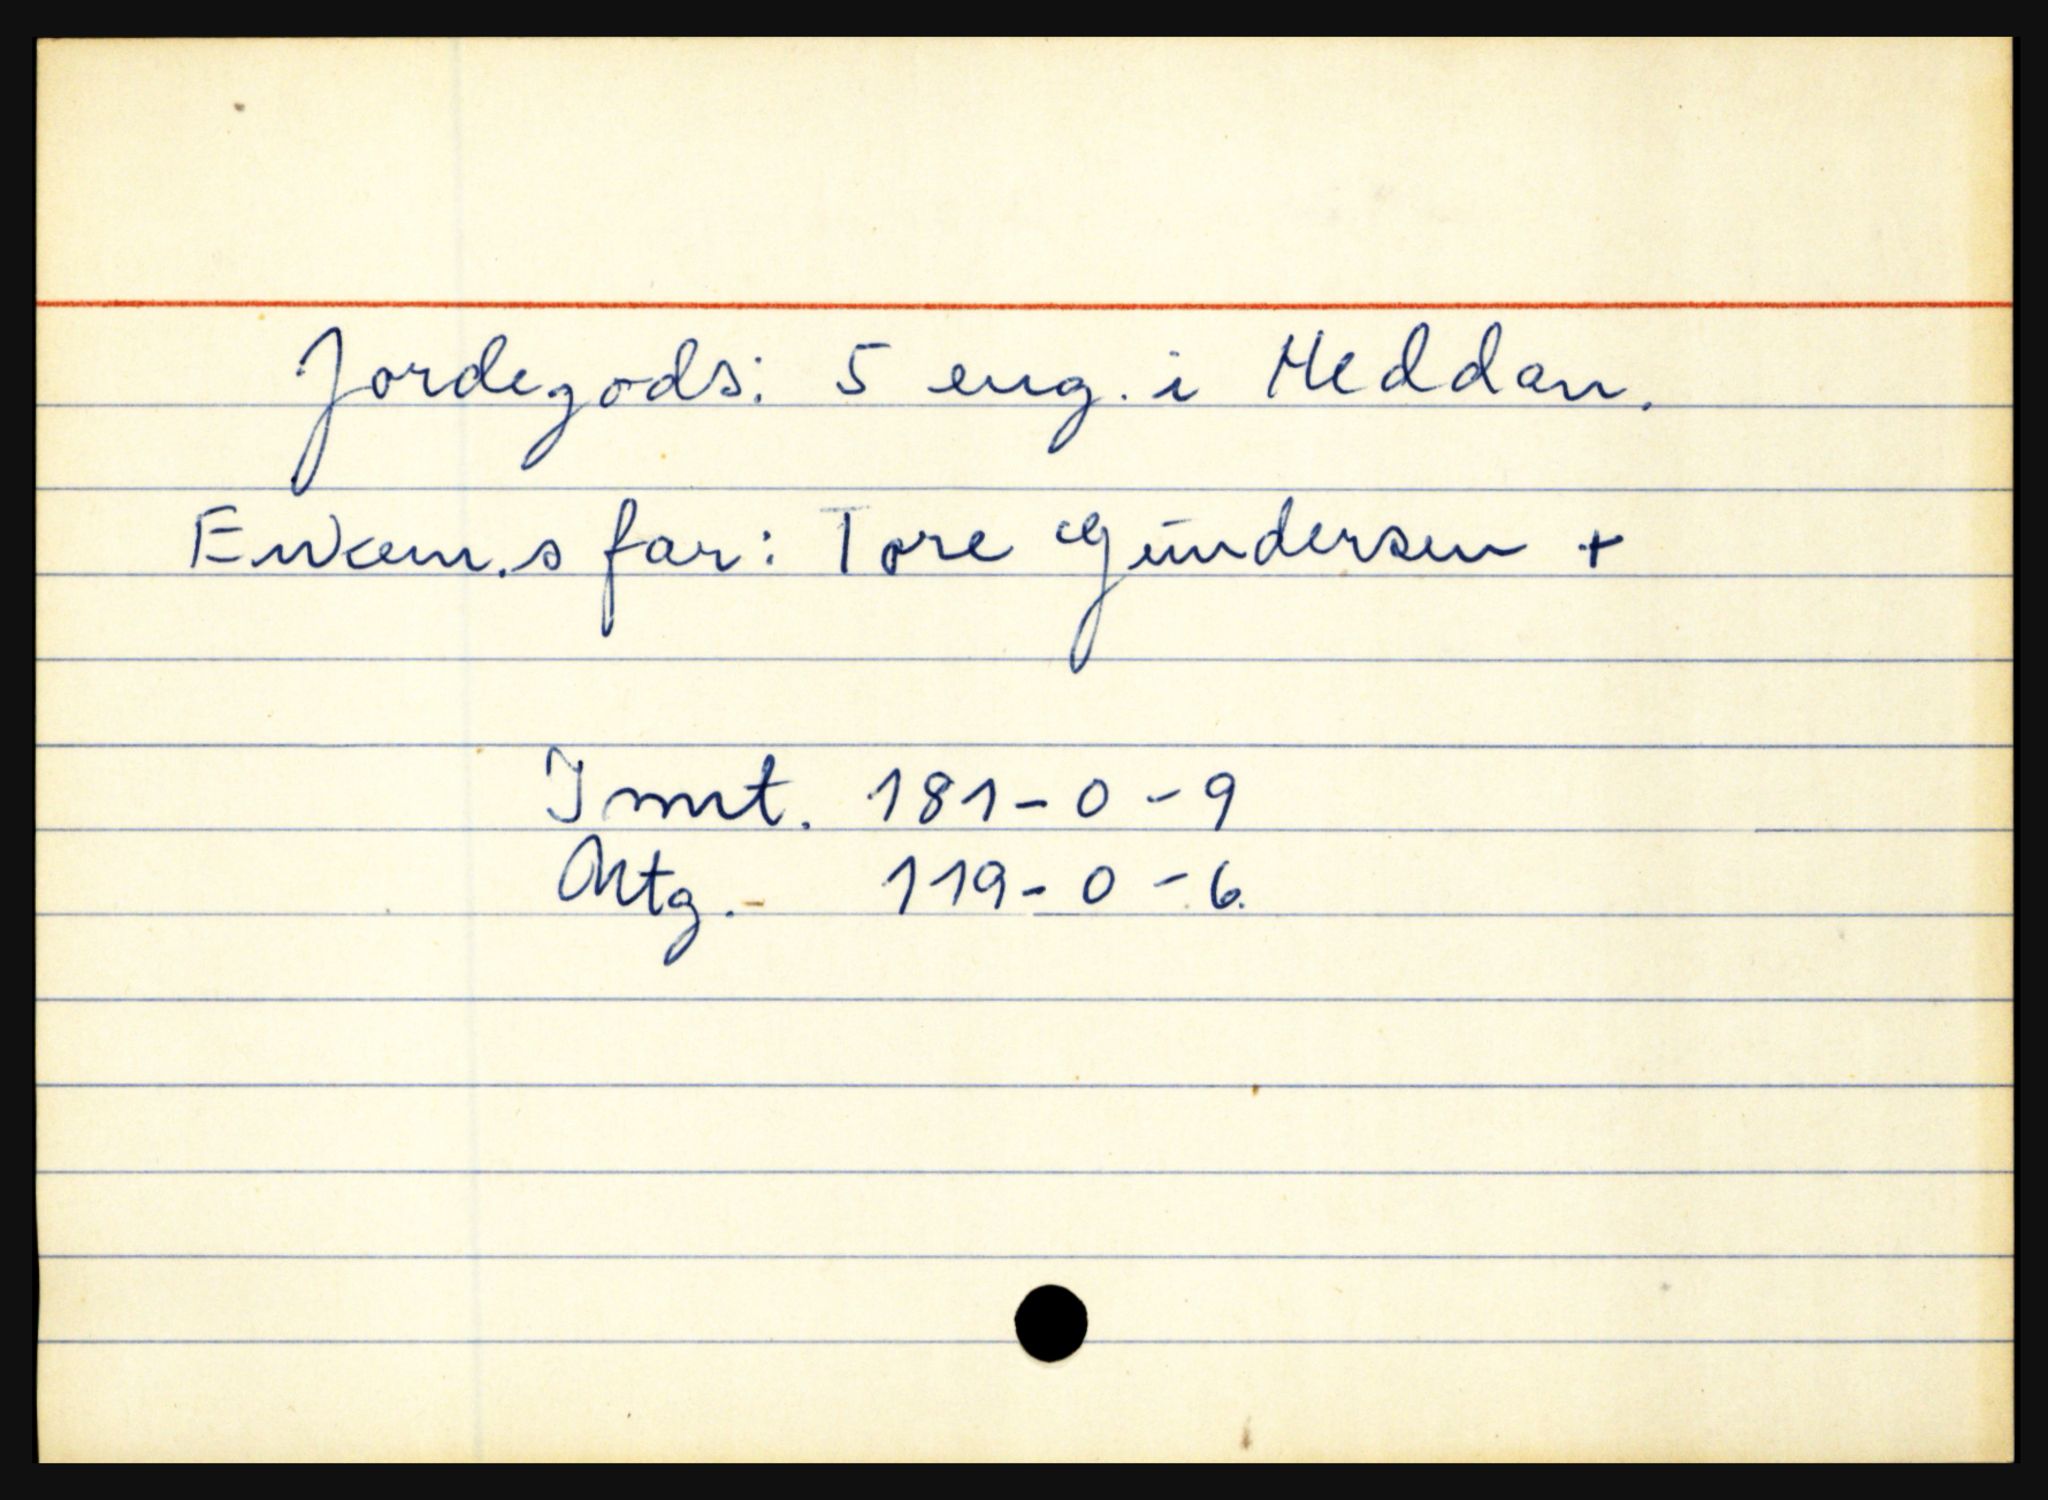 Jordegods: 5 eng. i Heddan.
Enkem.s far: Tore Gundersen +
Innt. 181-0-9
Utg.- 119-0-6.